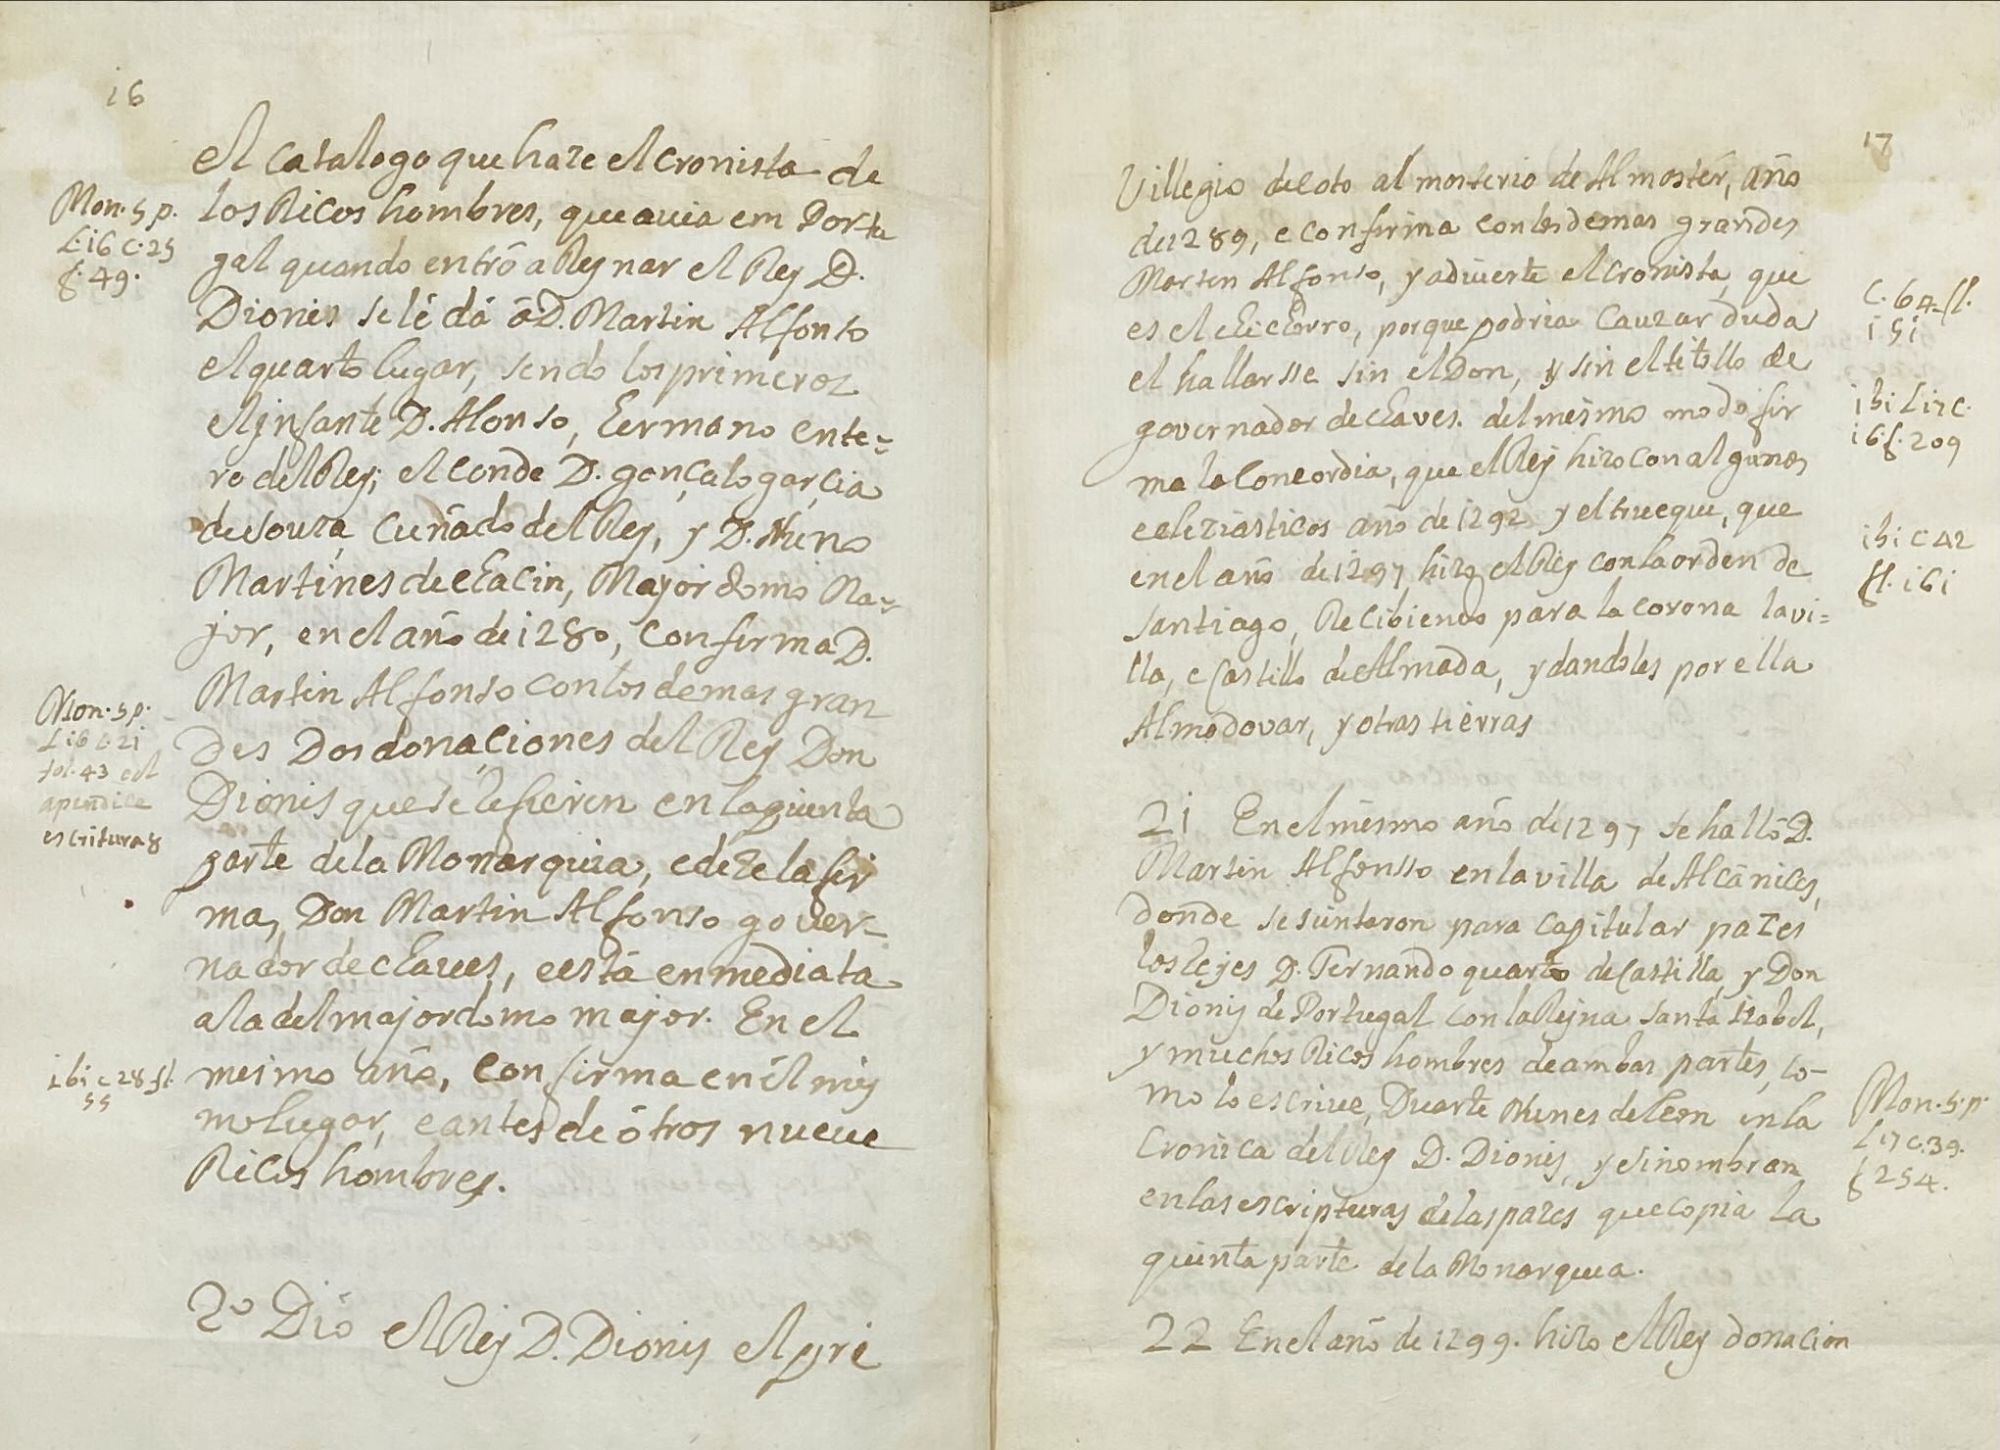 16
el catalogo que haze el cronista de
los Ricos hombres, que auia em Portu
gal quando entrô a Reynar el Rey D.
Dionis se lé dá â D. Martin Alfonso
el quarto lugar, sendo los primeros
el jnfante D. Alonso, hermano ente-
ro del Rey; el conde D. gonçalo garcia
de souza, cuñado del Rey, y D. Nuno
Martines de chacin, Mayordomo Ma-
jor, en el año de 1280, confirma D.
Martin Alfonso con los demas gran
des dos donaciones del Rey Don
Dionis que se Refieren en la quinta
parte de la Monarquia, e dize la fir
ma, Don Martin Alfonso gover-
nador de chaues, e está enmediata
a la del majordomo major. En el
mesmo año, confirma en él mis
mo lugar, e antes de ótros nueue
Ricos hombres.
20 Dió el Rey D. Dionis el pri
Mon. 5 p.
L. i6 C. 25
f. 49.
Mon. 5 p.
L i6 C 2i
fol. 43 e el
apendice
escritura 8
ibi c 28 fl.
55
17
Villegio de coto al mosterio de Almostér, año
de 1289, e confirma con los demas grandes
Marten Alfonso, y aduierte el cronista, que
es el chichorro, porque podria cauzar duda
el hallarsse sin el Don, y sin el titollo de
governador de chaves. del mesmo modo fir
ma la concordia, que el Rey hizo con algunos
ecleziasticos año de 1292, y el trueque, que
en el año de 1297 hizo el Rey con la orden de
santiago, Recibiendo para la corona la vi=
lla, e castillo de Almada, y dandoles por ella
Almodovar, y otras tierras
2i En el mesmo año de 1297 se halló D.
Martin Alfonsso en la villa de Alcánices,
donde se juntaron para capitular pazes
los Rejes D. Fernando quarto de Castilla, y Don
Dionis de Portugal con la Rejna santa Izabel,
y muchos Ricos hombres de ambas partes, co-
mo lo escriue, Duarte Nunes de leon en la
Cronica del Rey D. Dionis, y se nombran
en las escripturas de las pazes que copia la
quinta parte de la Monarquia.
22 En el año de 1299. hizo el Rey donacion
C. 64 fl.
i5i
ibi L i7 C.
i6 f. 209
ibi C 42
fl. i6i
Mon. 5. p.
L i7 C. 39.
f 254.